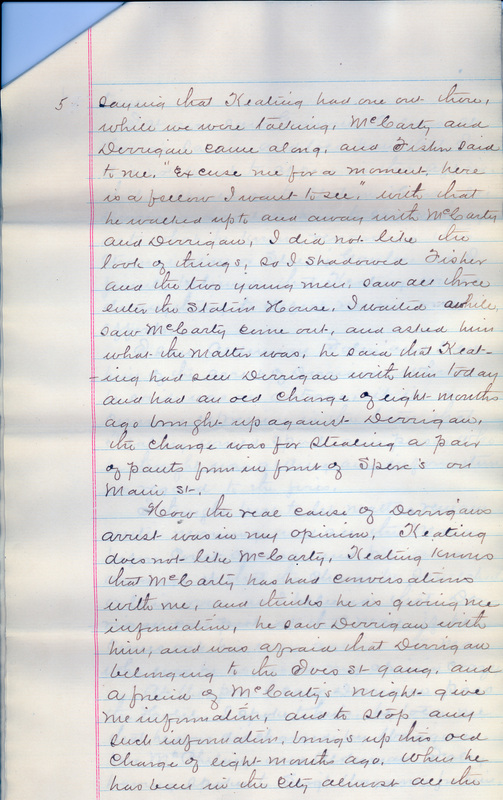 5 saying that Keating had one out there,
while we were talking, McCarty and
Derrigan came along, and Fisher said
to me, "Excuse me for a moment, here
is a fellow I want to see," with that
he walked up to and away with McCarty
and Derrigan, I did not like the
look of things, so I shadowed Fisher
and the two young men, saw all three
enter the Station House, I waited awhile,
saw McCarty come out, and asked him
what the matter was, he said that Keat-
-ing had seen Derrigan with him today
and had an old charge of eight months
ago brought up against Derrigan,
the charge was for stealing a pair
of pants from in front of Spere's on
Main St.
Now the real cause of Derrigan's
arrest was in my opinion, Keating
does not like McCarty, Keating knows
that McCarty has had conversations
with me, and thinks he is giving me
information, he saw Derrigan with
him, and was afraid that Derrigan
belonging to the Ives St gang, and
a friend of McCarty's might give
me information, and to stop any
such information, brings up this old
charge of eight months ago, when he
has been in the city almost all the